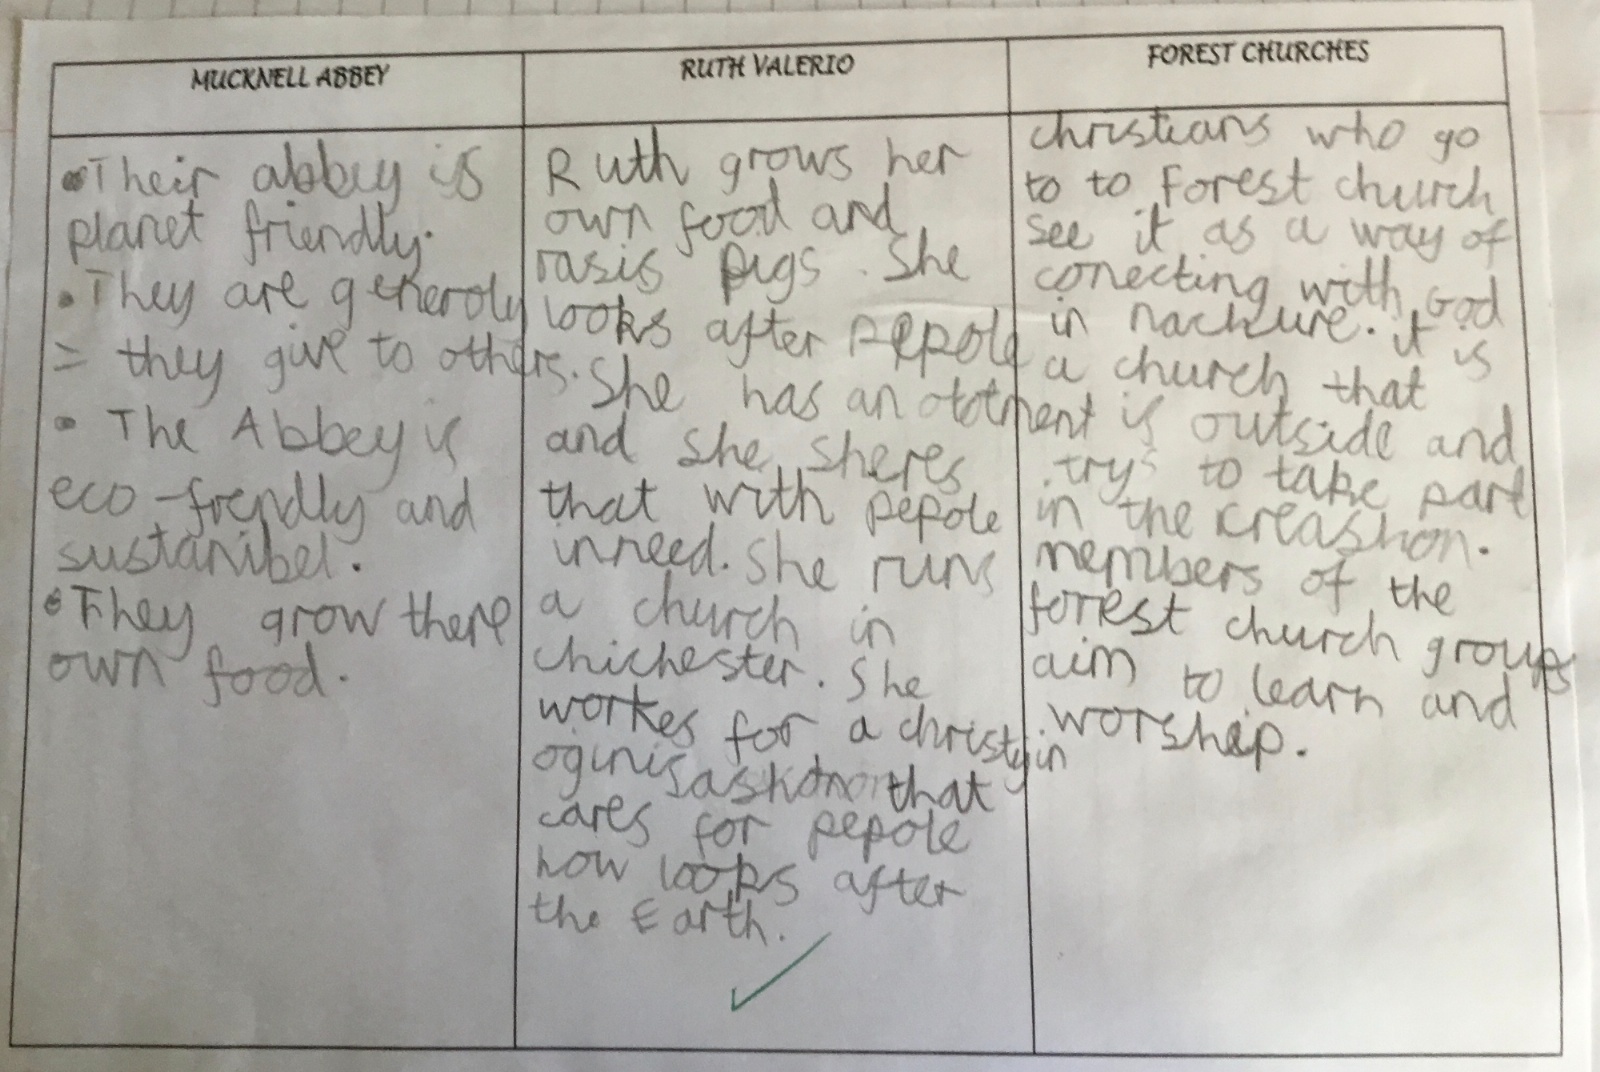 MUCKNELL ABBEY
• Their abbey is
planet friendly.
• They are generoly
= they give to others.
• The Abbey is
eco-frendly and
sustanibel.
• They grow there
own food.
RUTH VALERIO
Ruth grows her
own food and
rasis pigs. She
looks after pepole
She has an ototment
and she sheres
that with pepole
inneed. She runs
a church in
chichester. She
workes for a christyin
that
cares for pepole
how looks after
the Earth.
FOREST CHURCHES
christians who go
to to Forest church
see it as a way of
conecting with God
in nachure. it is
a church that
is outside and
trys to take part
in the kreashon.
members of the
forest church groups
aim to learn and
worship.